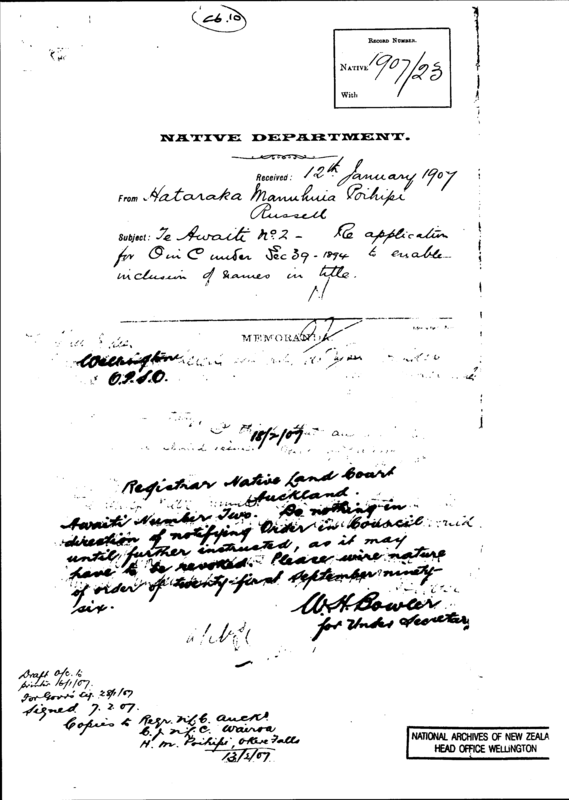 C6.10
RECORD NUMBER.
NATIVE 1907/23
With
NATIVE DEPARTMENT.
Received: 12th January 1907
From Hataraka Manuhuia Poihipi
Russell
Subject: Te Awaiti No. 2 - Re application
for O in C under Sec 39 - 1894 to enable
inclusion of names in title.
MEMORANDA
Wellington
O.P.S.O.
18/2/07
Registrar Native Land Court
Auckland.
Awaiti Number Two. Do nothing in
direction of notifying Order in Council
until further instructed, as it may
have to be revoked. Please wire nature
of order of twenty-first September ninety
six.
W.H. Bowler
for Under Secretary
Draft O/C. to
printer 16/1/07.
For Gov's sig. 28/1/07
Signed 7.2.07.
Copies to Regr. N.L.C. Auckd
C.J. N.L.C. Wairoa
H. M. Poihipi, Okere Falls
13/2/07
NATIONAL ARCHIVES OF NEW ZEALA
HEAD OFFICE WELLINGTON